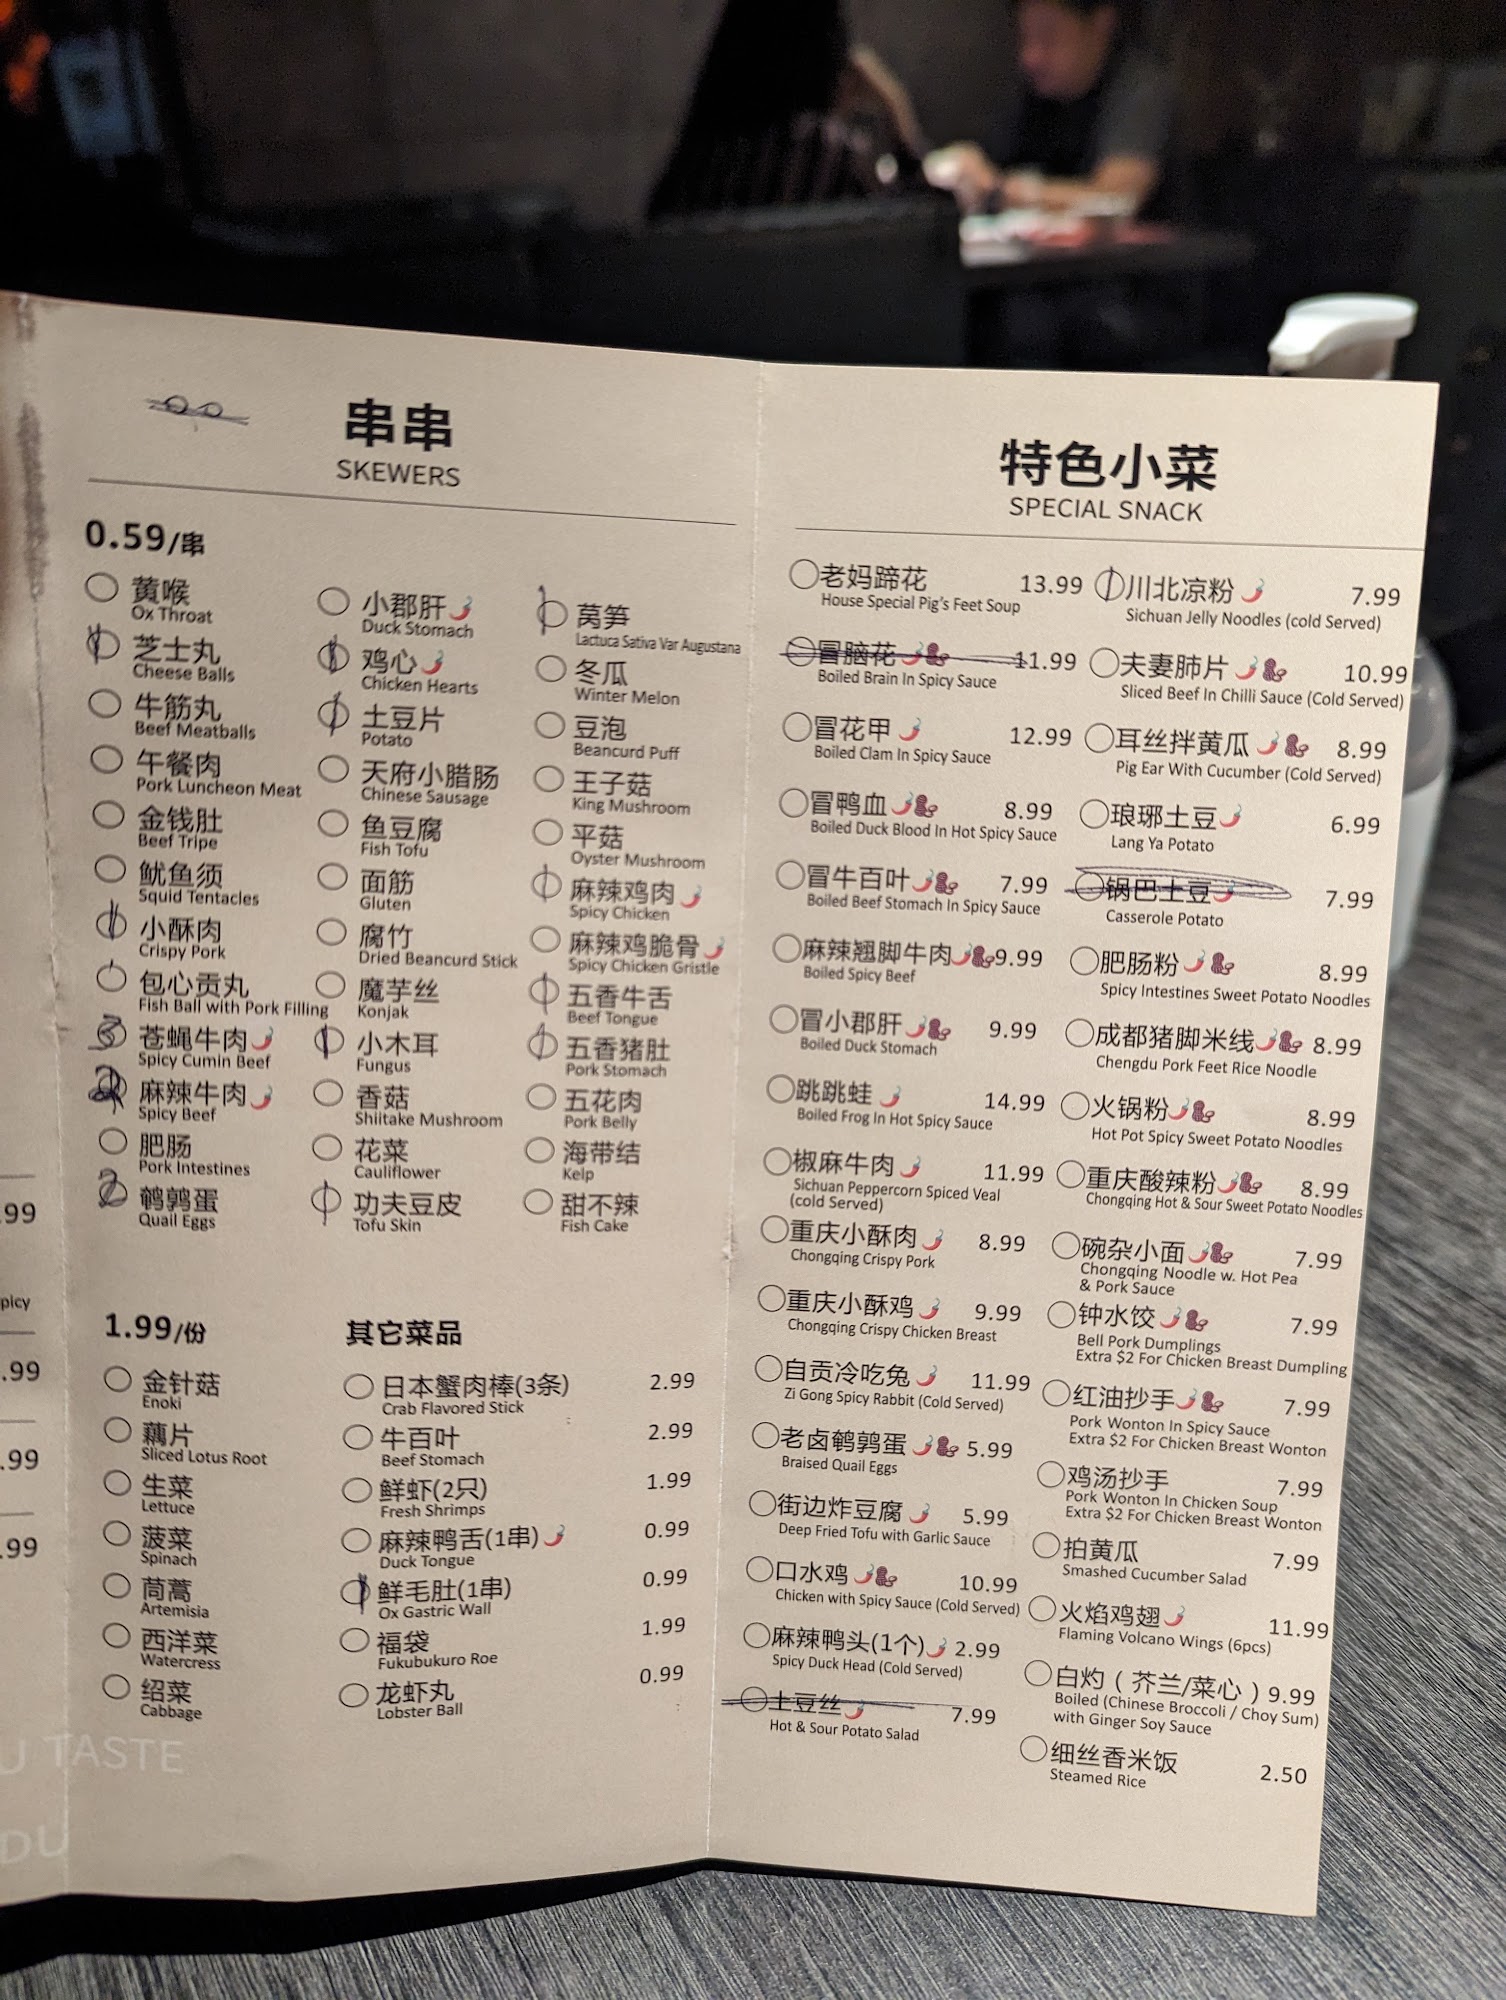 串串
SKEWERS
0.59/串
黄喉
Ox Throat
芝士丸
Cheese Balls
牛筋丸
Beef Meatballs
午餐肉
Pork Luncheon Meat
金钱肚
Beef Tripe
鱿鱼须
Squid Tentacles
小酥肉
Crispy Pork
包心贡丸
Fish Ball with Pork Filling
3 苍蝇牛肉
Spicy Cumin Beef
麻辣牛肉
Spicy Beef
肥肠
Pork Intestines
2 鹌鹑蛋
Quail Eggs
小郡肝
Duck Stomach
鸡心
Chicken Hearts
土豆片
Potato
天府小腊肠
Chinese Sausage
鱼豆腐
Fish Tofu
面筋
Gluten
腐竹
Dried Beancurd Stick
魔芋丝
Konjak
小木耳
Fungus
香菇
Shiitake Mushroom
花菜
Cauliflower
功夫豆皮
Tofu Skin
莴笋
Lactuca Sativa Var Augustana
冬瓜
Winter Melon
豆泡
Beancurd Puff
王子菇
King Mushroom
平菇
Oyster Mushroom
麻辣鸡肉
Spicy Chicken
麻辣鸡脆骨
Spicy Chicken Gristle
五香牛舌
Beef Tongue
五香猪肚
Pork Stomach
五花肉
Pork Belly
海带结
Kelp
甜不辣
Fish Cake
1.99/份
金针菇
Enoki
藕片
Sliced Lotus Root
生菜
Lettuce
菠菜
Spinach
茼蒿
Artemisia
西洋菜
Watercress
绍菜
Cabbage
其它菜品
日本蟹肉棒(3条) 2.99
Crab Flavored Stick
牛百叶 2.99
Beef Stomach
鲜虾(2只) 1.99
Fresh Shrimps
麻辣鸭舌(1串) 0.99
Duck Tongue
鲜毛肚(1串) 0.99
Ox Gastric Wall
福袋 1.99
Fukubukuro Roe
龙虾丸 0.99
Lobster Ball
特色小菜
SPECIAL SNACK
老妈蹄花 13.99
House Special Pig's Feet Soup
冒脑花 11.99
Boiled Brain In Spicy Sauce
冒花甲 12.99
Boiled Clam In Spicy Sauce
冒鸭血 8.99
Boiled Duck Blood In Hot Spicy Sauce
冒牛百叶 7.99
Boiled Beef Stomach In Spicy Sauce
麻辣翘脚牛肉 9.99
Boiled Spicy Beef
冒小郡肝 9.99
Boiled Duck Stomach
跳跳蛙 14.99
Boiled Frog In Hot Spicy Sauce
椒麻牛肉 11.99
Sichuan Peppercorn Spiced Veal
(cold Served)
重庆小酥肉 8.99
Chongqing Crispy Pork
重庆小酥鸡 9.99
Chongqing Crispy Chicken Breast
自贡冷吃兔 11.99
Zi Gong Spicy Rabbit (Cold Served)
老卤鹌鹑蛋 5.99
Braised Quail Eggs
街边炸豆腐 5.99
Deep Fried Tofu with Garlic Sauce
口水鸡 10.99
Chicken with Spicy Sauce (Cold Served)
麻辣鸭头(1个) 2.99
Spicy Duck Head (Cold Served)
土豆丝 7.99
Hot & Sour Potato Salad
川北凉粉 7.99
Sichuan Jelly Noodles (cold Served)
夫妻肺片 10.99
Sliced Beef In Chilli Sauce (Cold Served)
耳丝拌黄瓜 8.99
Pig Ear With Cucumber (Cold Served)
琅琊土豆 6.99
Lang Ya Potato
锅巴土豆 7.99
Casserole Potato
肥肠粉 8.99
Spicy Intestines Sweet Potato Noodles
成都猪脚米线 8.99
Chengdu Pork Feet Rice Noodle
火锅粉 8.99
Hot Pot Spicy Sweet Potato Noodles
重庆酸辣粉 8.99
Chongqing Hot & Sour Sweet Potato Noodles
碗杂小面 7.99
Chongqing Noodle w. Hot Pea
& Pork Sauce
钟水饺 7.99
Bell Pork Dumplings
Extra $2 For Chicken Breast Dumpling
红油抄手 7.99
Pork Wonton In Spicy Sauce
Extra $2 For Chicken Breast Wonton
鸡汤抄手 7.99
Pork Wonton In Chicken Soup
Extra $2 For Chicken Breast Wonton
拍黄瓜 7.99
Smashed Cucumber Salad
火焰鸡翅 11.99
Flaming Volcano Wings (6pcs)
白灼（芥兰/菜心）9.99
Boiled (Chinese Broccoli / Choy Sum)
with Ginger Soy Sauce
细丝香米饭 2.50
Steamed Rice
.99
picy
.99
.99
.99
U TASTE
DU